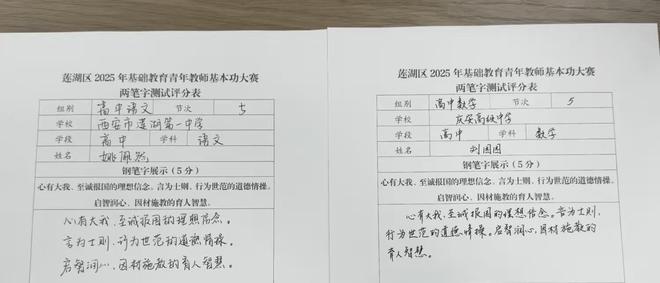 莲湖区 2025 年基础教育青年教师基本功大赛
两笔字测试评分表
组别 高中语文 节次 5
学校 西安市莲湖第一中学
学段 高中 学科 语文
姓名 姚佩然
钢笔字展示（5 分）
心有大我、至诚报国的理想信念。言为士则、行为世范的道德情操。
启智润心、因材施教的育人智慧。
心有大我、至诚报国的理想信念。
言为士则、行为世范的道德情操。
启智润心、因材施教的育人智慧。
莲湖区 2025 年基础教育青年教师基本功大赛
两笔字测试评分表
组别 高中数学 节次 5
学校 庆安高级中学
学段 高中 学科 数学
姓名 刘园园
钢笔字展示（5 分）
心有大我、至诚报国的理想信念。言为士则、行为世范的道德情操。
启智润心、因材施教的育人智慧。
心有大我、至诚报国的理想信念。言为士则、
行为世范的道德情操。启智润心、因材施教的
育人智慧。